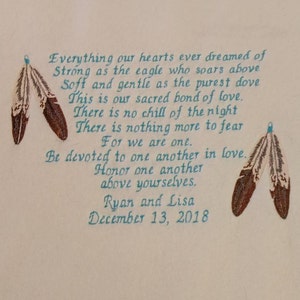 Everything our hearts ever dreamed of
Strong as the eagle who soars above
Soft and gentle as the purest dove
This is our sacred bond of love.
There is no chill of the night
There is nothing more to fear
For we are one.
Be devoted to one another in love.
Honor one another
above yourselves.
Ryan and Lisa
December 13, 2018